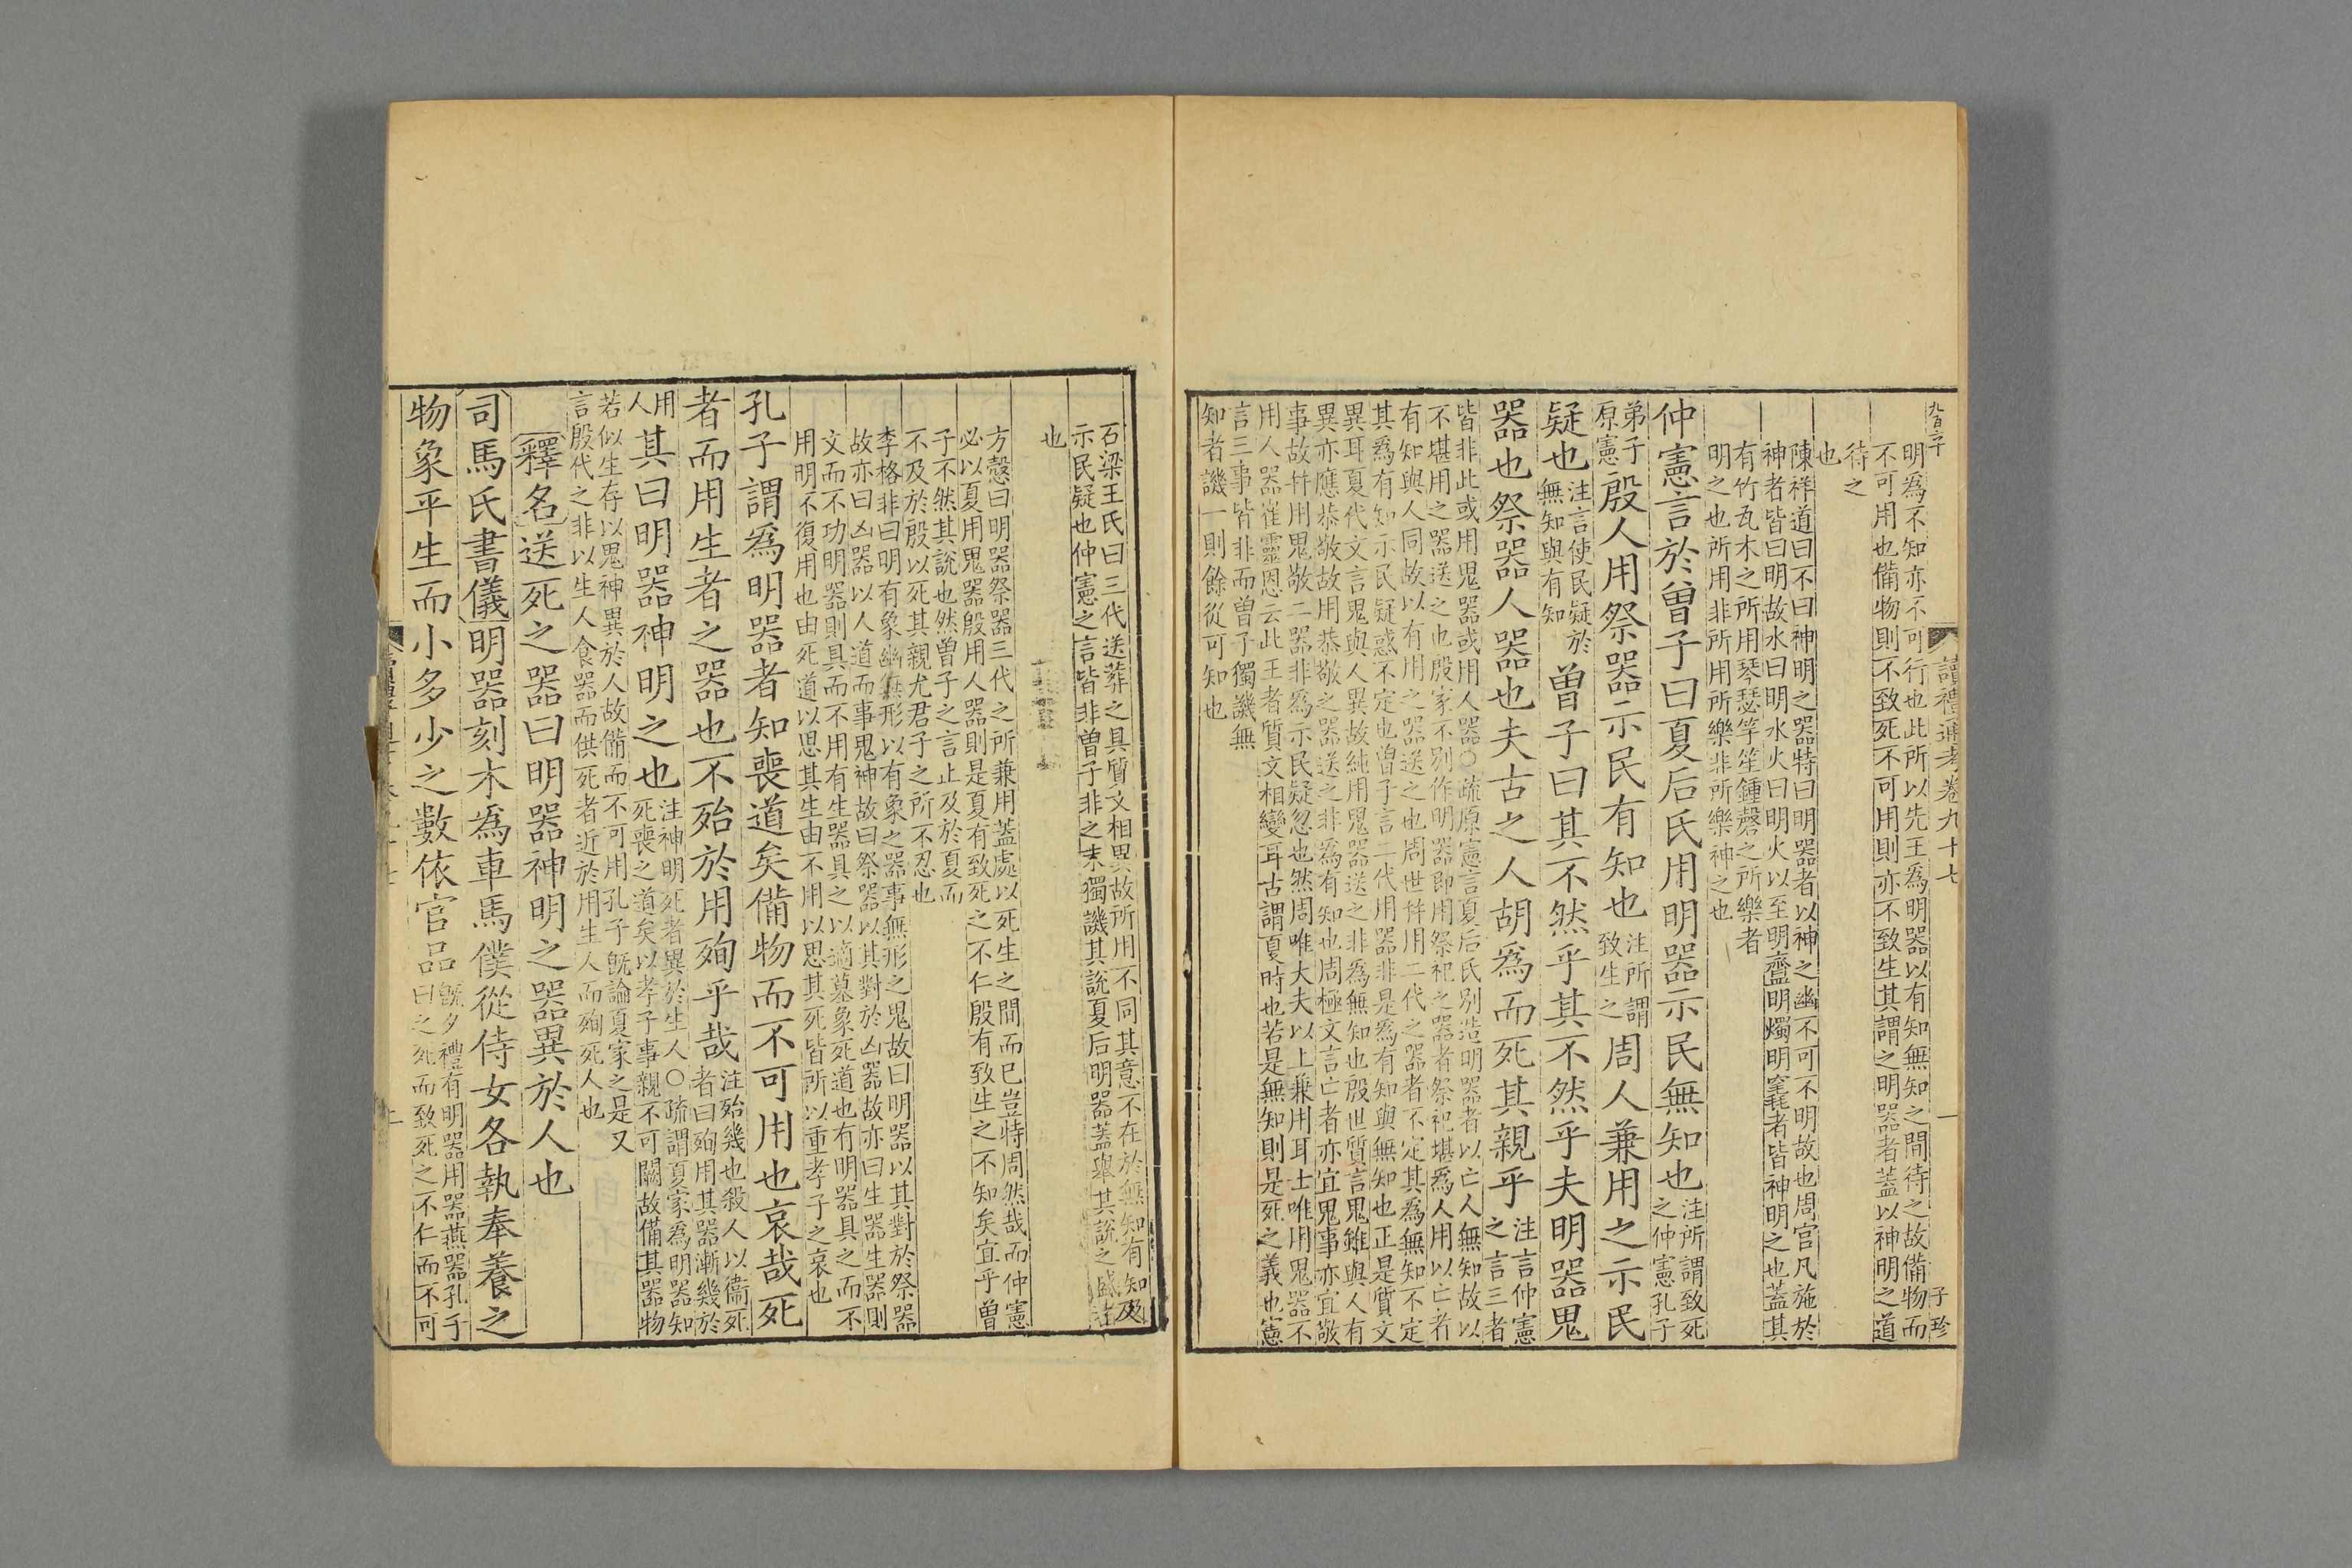 讀禮通考卷九十七
一
子珍
明為不知亦不可行也此所以先王為明器以有知無知之間待之故備物而
不可用也備物則不致死不可用則亦不致生其謂之明器者蓋以神明之道
待之
也
陳祥道曰不曰神明之器特曰明器者以神之幽不可不明故也周官凡施於
神者皆曰明故水曰明水火曰明火以至明齍明燭明竁者皆神明之也蓋其
有竹瓦木之所用琴瑟竽笙鍾磬之所樂者
明之也所用非所用所樂非所樂神之也
仲憲言於曾子曰夏后氏用明器示民無知也注所謂致死之仲憲孔子
弟子原憲殷人用祭器示民有知也注所謂致生之周人兼用之示民
疑也注言使民疑於無知與有知曾子曰其不然乎其不然乎夫明器鬼
器也祭器人器也夫古之人胡爲而死其親乎注言仲憲之言三者
皆非此或用鬼器或用人器○疏原憲言夏后氏別造明器者以亡人無知故以
不堪用之器送之也殷家不別作明器即用祭祀之器者祭祀堪爲人用以亡者
有知與人同故以有用之器送之也周世幷用二代之器者不定其爲無知不定
其爲有知示民疑惑不定也曾子言二代用器非是爲有知與無知也正是質文
異耳夏代文言鬼與人異故純用鬼器送之非爲無知也殷世質言鬼雖與人有
異亦應恭敬故用恭敬之器送之非爲有知也周極文言亡者亦宜鬼事亦宜敬
事故幷用鬼敬二器非爲示民疑忽也然周唯大夫以上兼用耳士唯用鬼器不
用人器崔靈恩云此王者質文相變耳古謂夏時也若是無知則是死之義也憲
言三事皆非而曾子獨譏無
知者譏一則餘從可知也
石梁王氏曰三代送葬之具質文相異故所用不同其意不在於無知有知及
示民疑也仲憲之言皆非曾子非之末獨譏其說夏后明器蓋舉其說之盛者
也
方慤曰明器祭器三代之所兼用蓋處以死生之間而已豈特周然哉而仲憲
必以夏用鬼器殷用人器則是夏有致死之不仁殷有致生之不知矣宜乎曾
子不然其說也然曾子之言止及於夏而
不及於殷以死其親尤君子之所不忍也
李格非曰明有象幽無形以有象之器事無形之鬼故曰明器以其對於祭器
故亦曰凶器以人道而事鬼神故曰祭器以其對於凶器故亦曰生器生器則
文而不功明器則具而不用有生器具之以適墓象死道也有明器具之而不
用明不復用也由死道以思其生由不用以思其死皆所以重孝子之哀也
孔子謂爲明器者知喪道矣備物而不可用也哀哉死
者而用生者之器也不殆於用殉乎哉注殆幾也殺人以衞死者曰殉用其器漸幾於
用人其曰明器神明之也注神明死者異於生人○疏謂夏家爲明器知死喪之道矣以孝子事親不可闕故備其器物
若似生存以鬼神異於人故備而不可用孔子旣論夏家之是又
言殷代之非以生人食器而供死者近於用生人而殉死人也
釋名送死之器曰明器神明之器異於人也
司馬氏書儀明器刻木爲車馬僕從侍女各執奉養之
物象平生而小多少之數依官品旣夕禮有明器用器燕器孔子曰之死而致死之不仁而不可